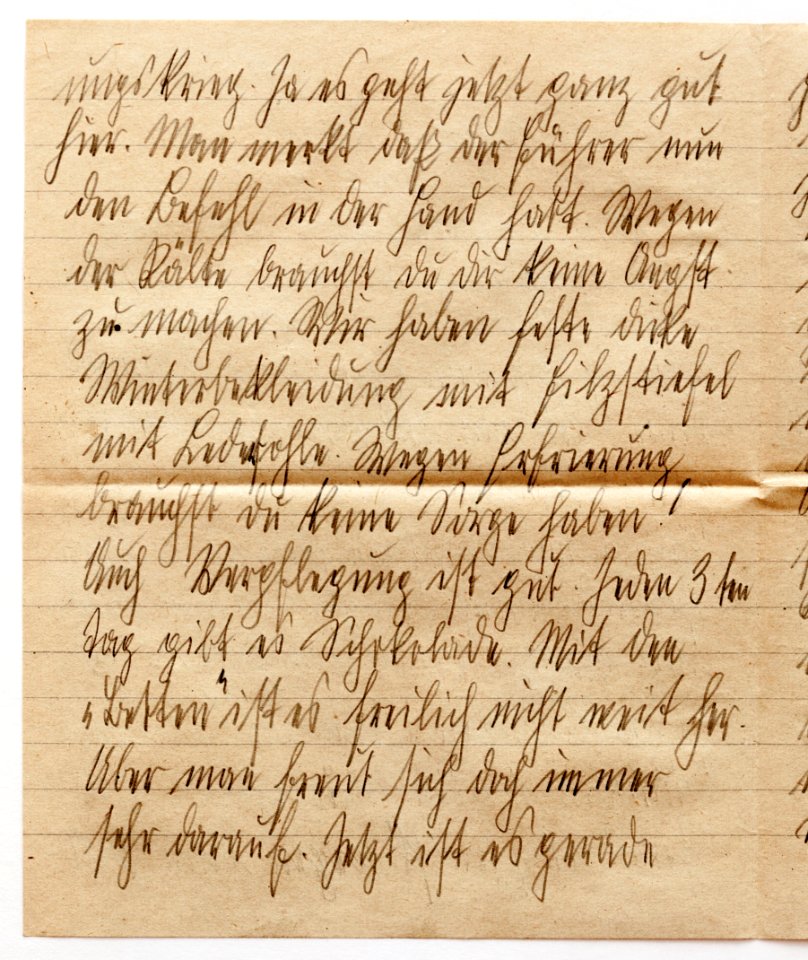 ungskrieg. Ja es geht jetzt ganz gut
hier. Man merkt daß der Führer nun
den Befehl in der Hand hatt. Wegen
der Kälte brauchst du dir keine Angst
zu machen. Wir haben feste dicke
Winterbekleidung mit Filzstiefel
mit Ledersohle. Wegen Erfrierung
brauchst du keine Sorge haben!
Auch Verpflegung ist gut. Jeden 3ten
Tag gibt es Schokolade. Mit den
„Betten" ist es freilich nicht weit her.
Aber man freut sich doch immer
sehr darauf. Jetzt ist es gerade